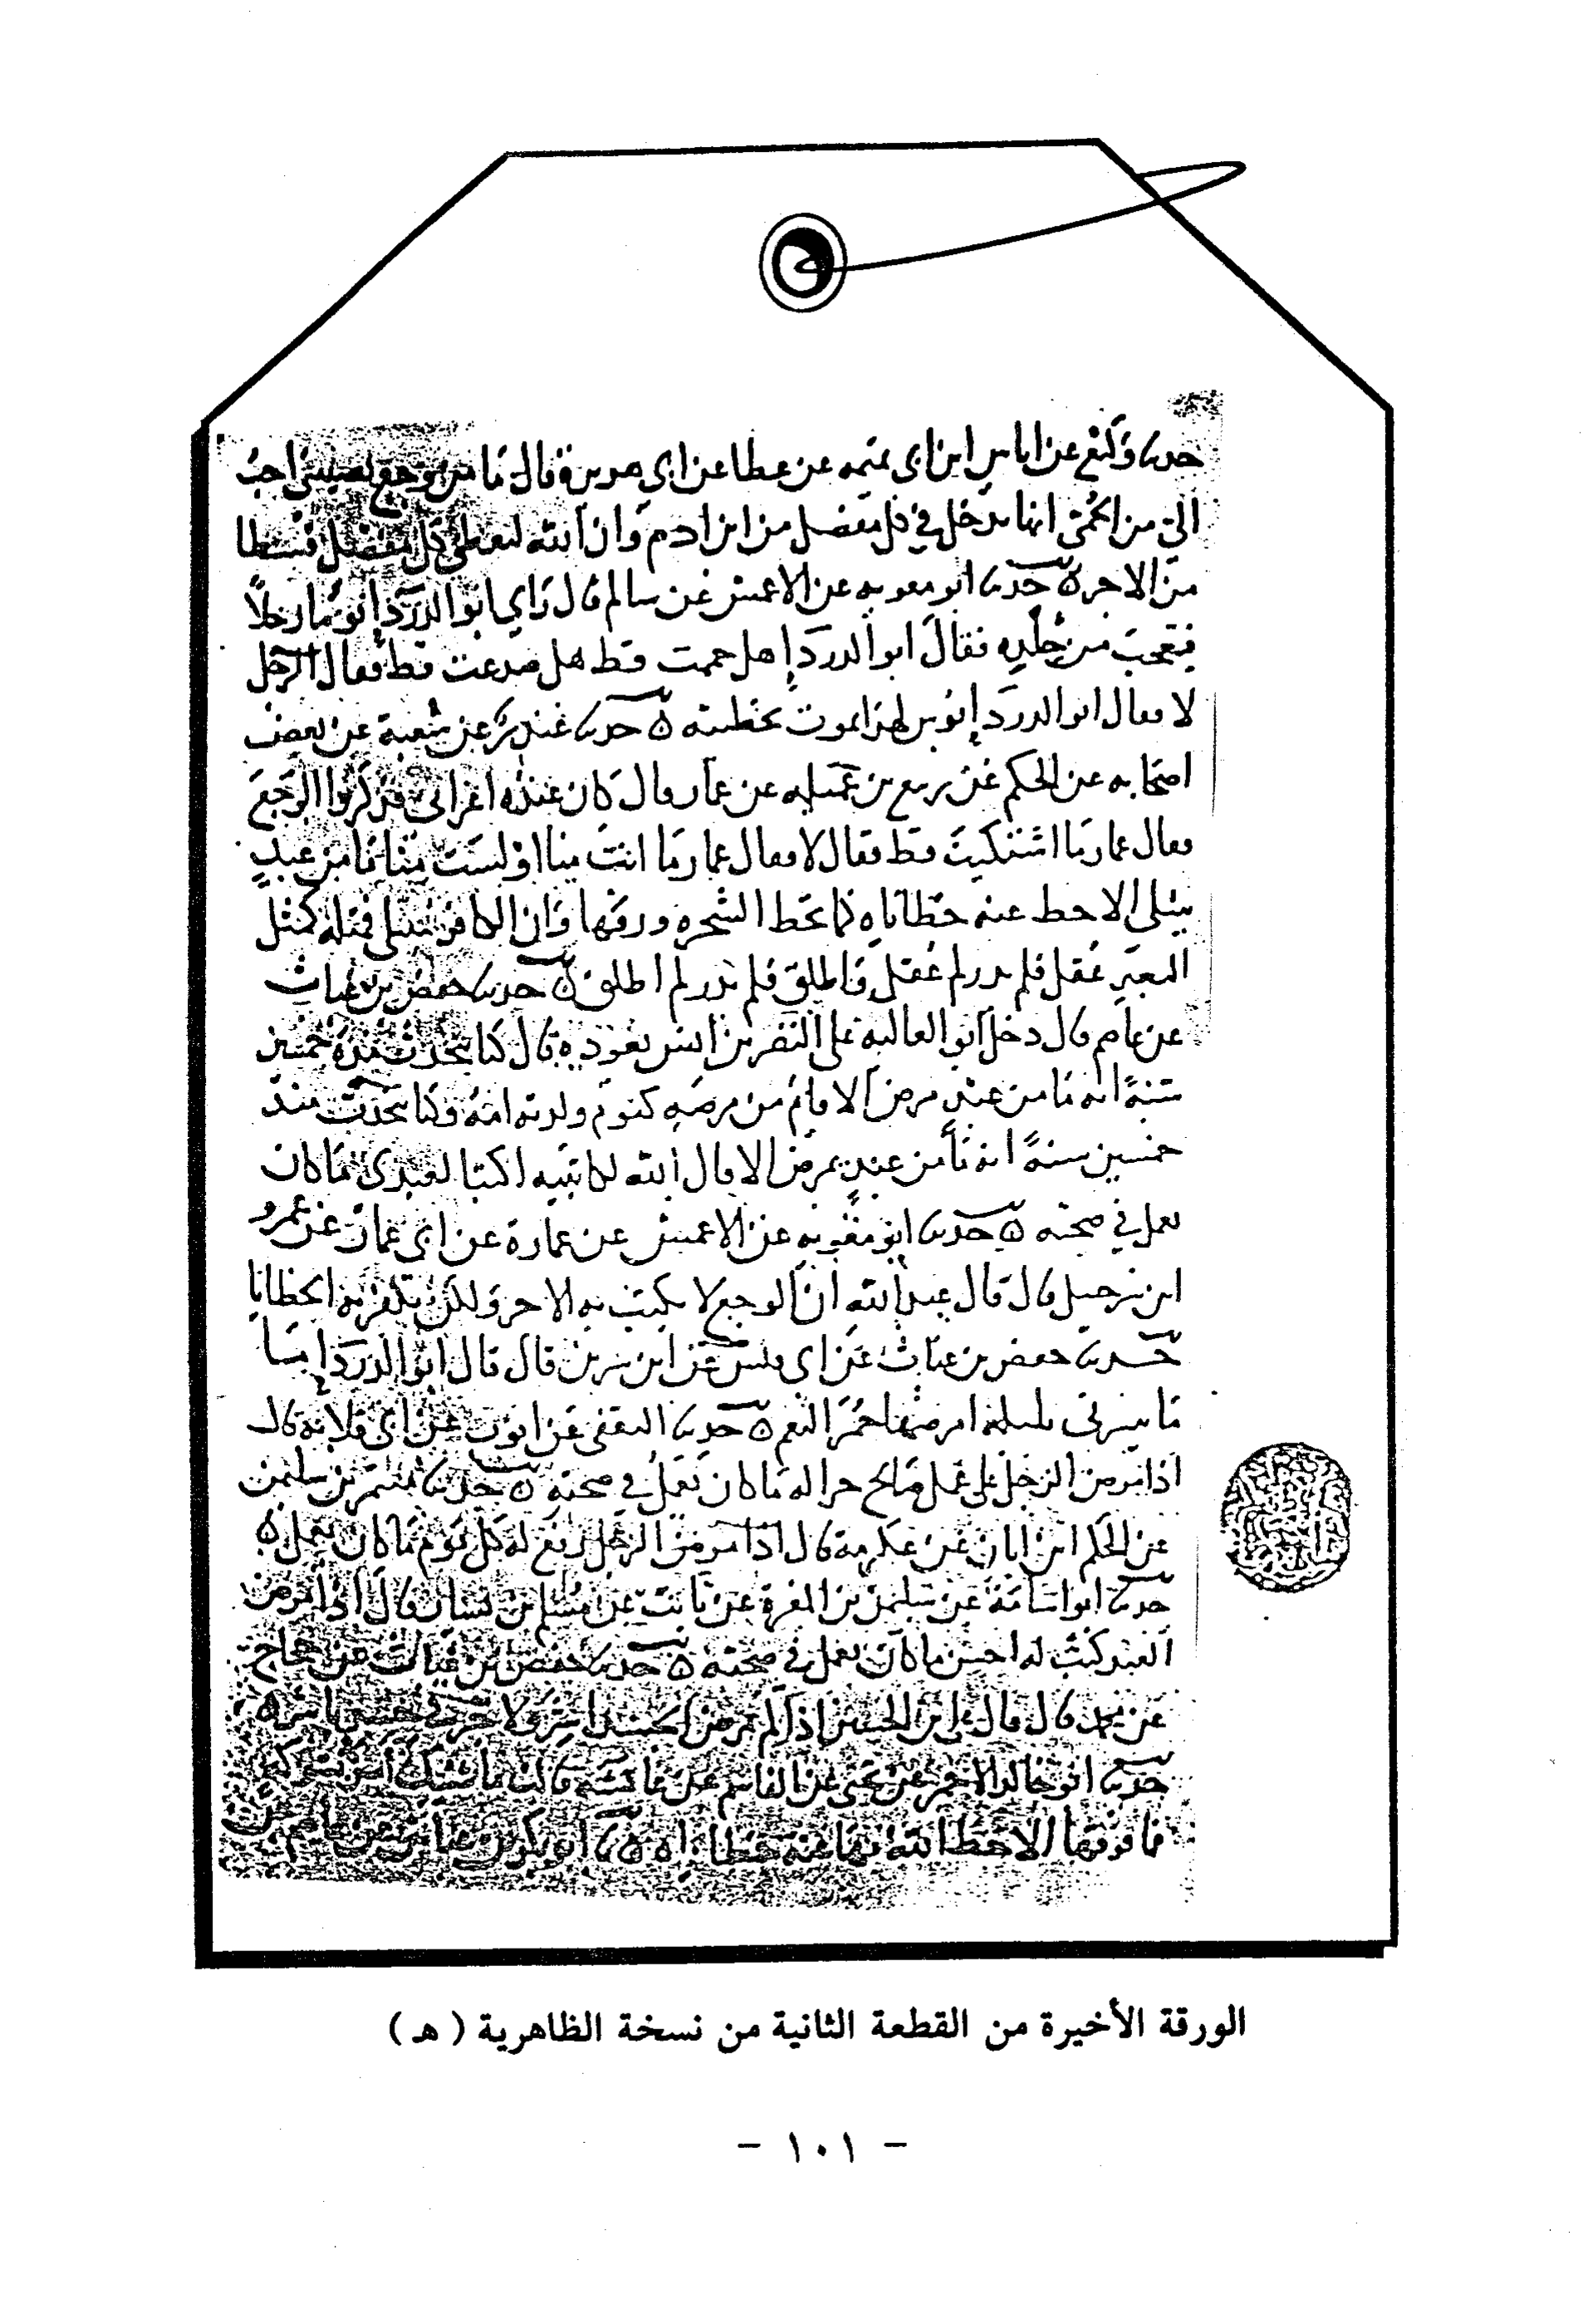 حدثنا وكيع عن اياس ابن ابى تميمه عن عطا عن ابي هريرة قال ما من وجع يصيبنى احب
الي من الحمى انها تدخل في كل مفصل من ابن ادم وان الله ليعطي كل مفصل قسطا
من الاجر ه حدثنا ابو معويه عن الاعمش عن سالم قال راي ابو الدرداء يوما رجلاً
فتعجب من جلده فقال ابو الدرداء هل حممت قط هل صدعت قط فقال الرجل
لا فقال ابو الدرداء بوس لهذا يموت بخطيته ه حدثنا غندر عن شعبة عن بعض
اصحابه عن الحكم عن ربيع بن عميله عن عمار قال كان عنده اعرابى فذكروا الوجع
فقال عمار ما اشتكيت قط فقال لا فقال عمار ما انت منا او لست منا ما من عبدٍ
يبتلى الا حط عنه خطاياه كما تحط الشجره ورقها وان الكافر يبتلى فمثله كمثل
البعير عقل فلم يدر لم عقل فاطلق فلم يدر لم اطلق ه حدثنا حفص بن غياث
عن عاصم قال دخل ابو العاليه على النضر بن انس يعوده قال كنا نتحدث منذ خمسين
سنةً انه ما من عبدٍ مرض الا قام من مرضه كيوم ولدته امه وكنا نتحدث منذ
خمسين سنةً انه ما من عبدٍ يمرض الا قال الله لكاتبيه اكتبا لعبدى ما كان
يعمل في صحته ه حدثنا ابو معويه عن الاعمش عن عمارة عن ابى عمار عن عمرو
ابن شرحبيل قال قال عبد الله ان الوجع لا يكتب به الاجر ولكن يكفر به الخطايا
حدثنا حفص بن غياث عن ابن سرين قال قال ابو الدرداء
ما يسرنى بليله امرضها حُمُر النعم ه حدثنا الثقفى عن ايوب عن ابى قلابة قال
اذا مرض الرجل على عمل صالح جرا له ما كان يعمل في صحته ه حدثنا معتمر بن سليمن
عن الحكم ابن ابان عن عكرمة قال اذا مرض الرجل رفع له كل يوم ما كان يعمل ه
حدثنا ابو اسامة عن سليمن بن المغيرة عن ثابت عن مسلم بن يسار قال اذا مرض
العبد كتب له احسن ما كان يعمل في صحته ه حدثنا حفص بن غياث عن حجاج
عن محمد قال قال على بن الحسين اذا لم يمرض الجسد اشر ولا خير في جسد يا شر ه
حدثنا ابو خالد الاحمر عن يحيى عن القاسم عن عائشه قالت
فما فوقها الا حط الله بها عنه خطاياه ه حدثنا ابو بكر بن عياش عن عاصم
الورقة الأخيرة من القطعة الثانية من نسخة الظاهرية ( هـ )
- ١٠١ -